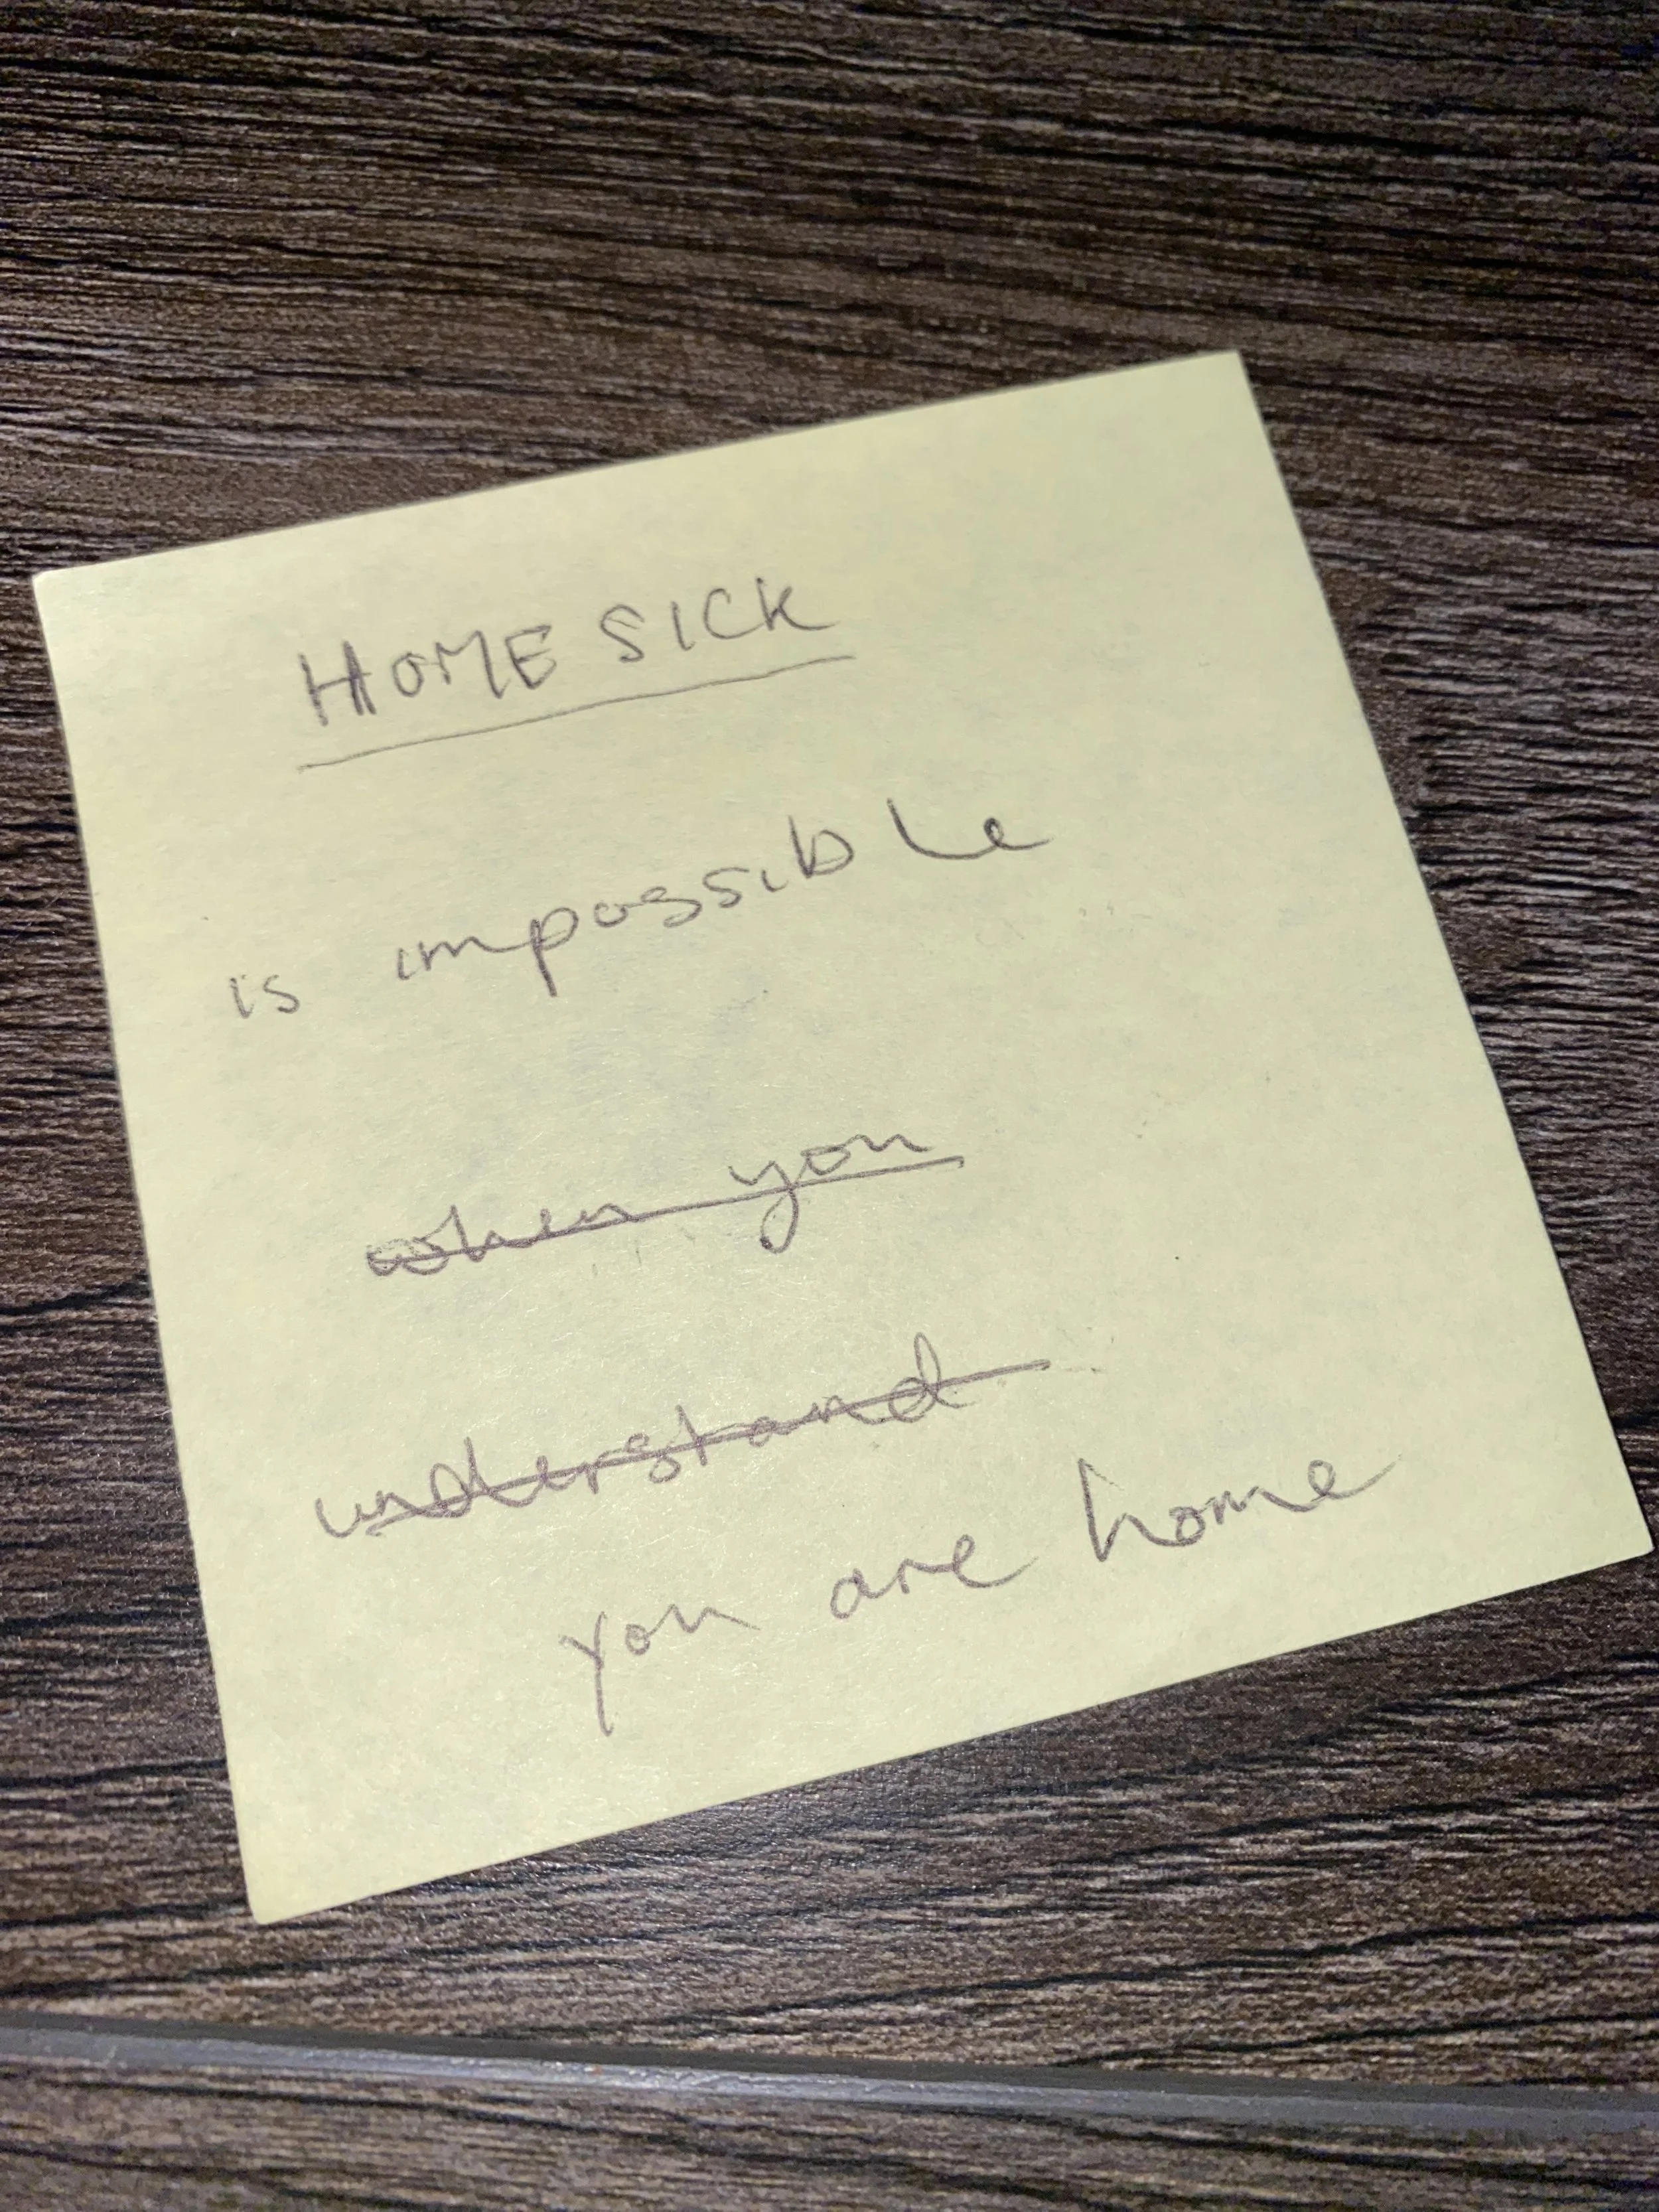 HOME SICK
is impossible
when you
understand
you are home